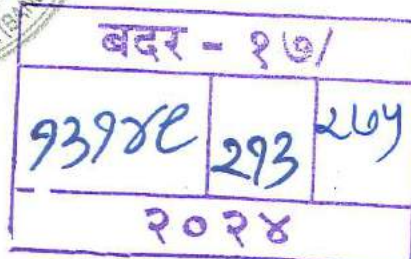 बदर - १७/
१३१४९ २१३ २७५
२०२४